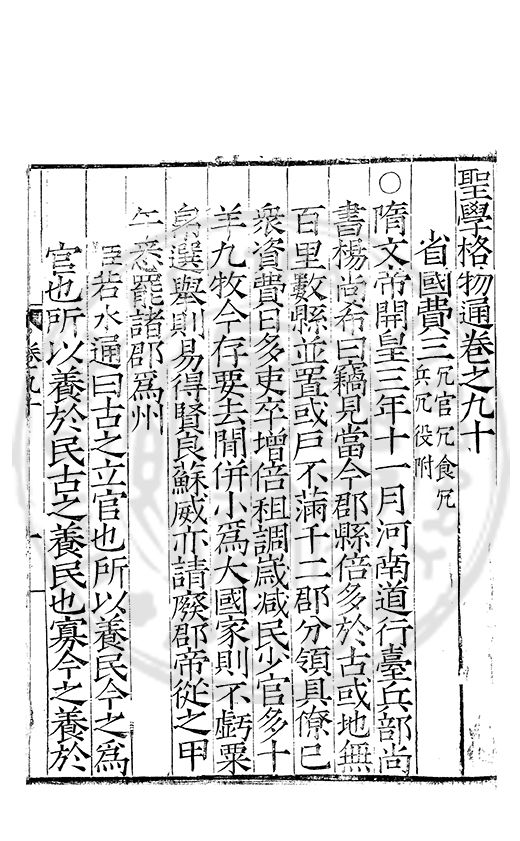 聖學格物通卷之九十
省國費三冗官冗食冗兵冗役附
○隋文帝開皇三年十一月河南道行臺兵部尚
書楊尚希曰竊見當今郡縣倍多於古或地無
百里數縣並置或戶不滿千二郡分領具僚已
衆資費日多吏卒增倍租調歲减民少官多十
羊九牧今存要去閒併小爲大國家則不虧粟
帛選舉則易得賢良蘇威亦請廢郡帝從之甲
午悉罷諸郡爲州
臣若水通曰古之立官也所以養民今之爲
官也所以養於民古之養民也寡今之養於
卷九十
一